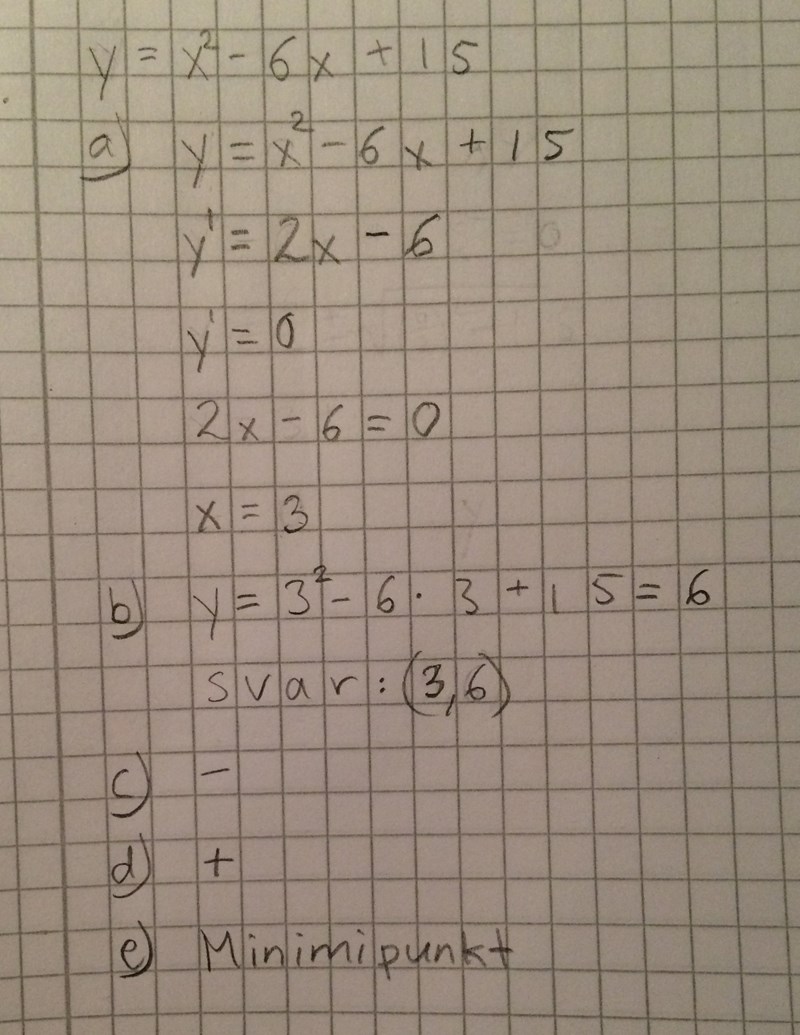 y = x² - 6x + 15
a) y = x² - 6x + 15
y' = 2x - 6
y' = 0
2x - 6 = 0
x = 3
b) y = 3² - 6 · 3 + 15 = 6
svar: (3,6)
c) -
d) +
e) Minimipunkt